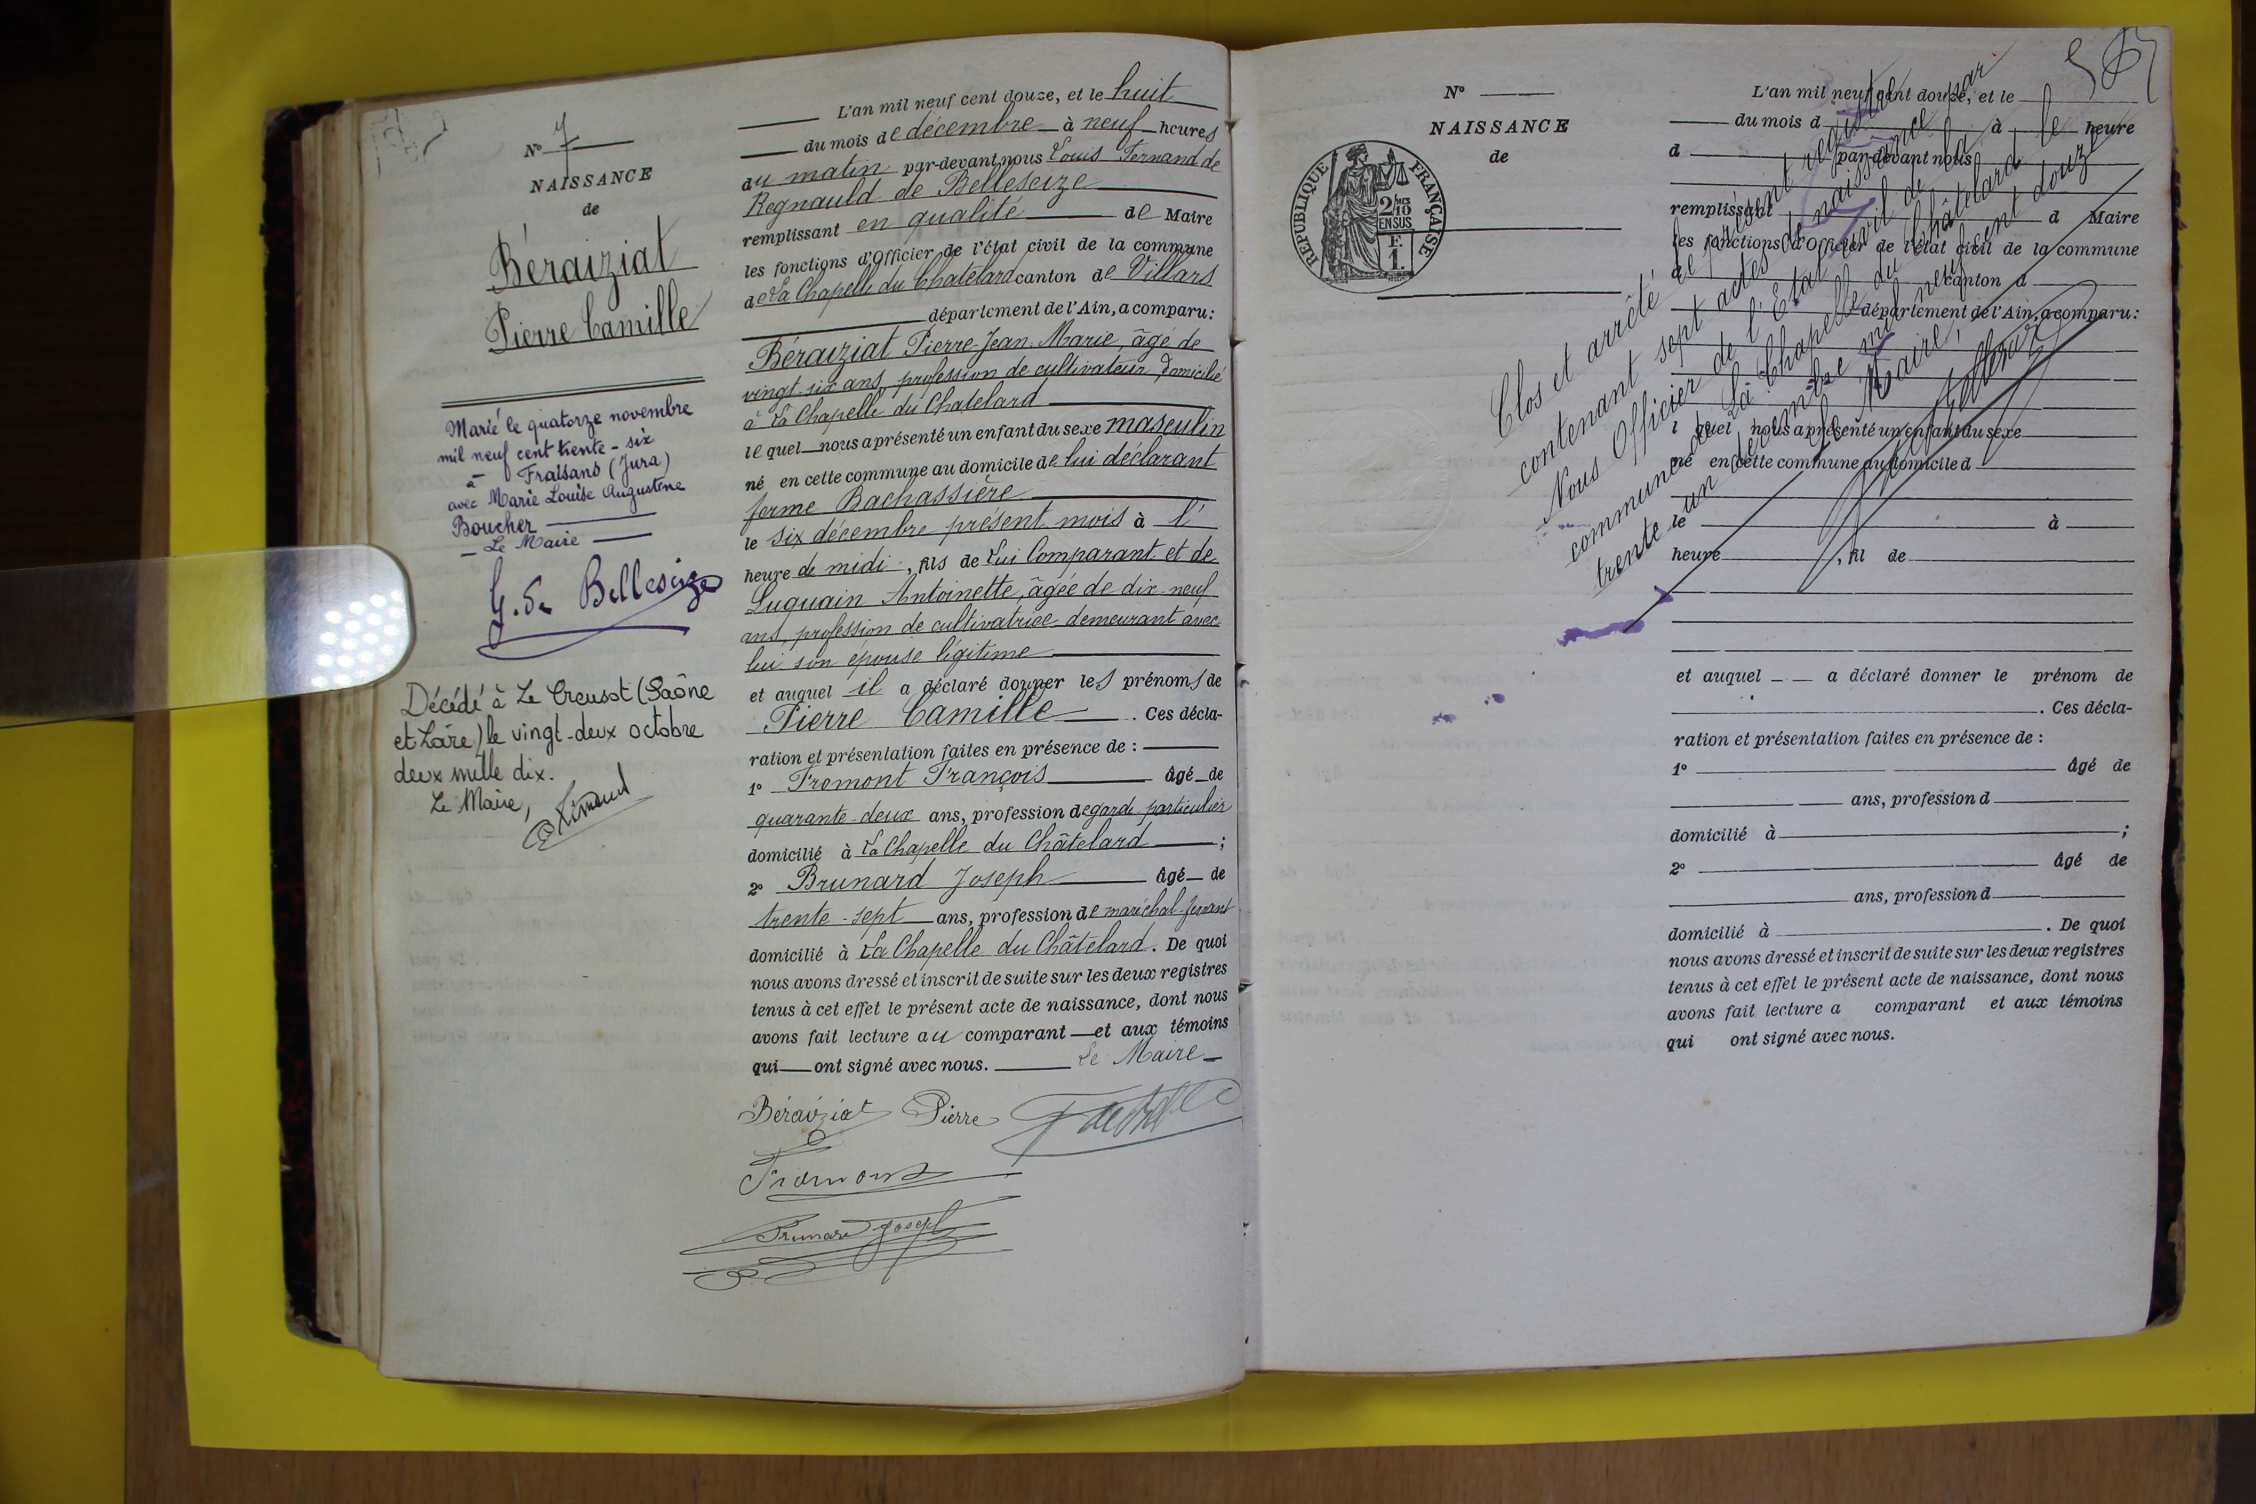 N° 7
NAISSANCE
de
Béraiziat
Pierre Camille
Marié le quatorze novembre
mil neuf cent trente-six
à Fraisans (Jura)
avec Marie Louise Augustine
Boucher
Le Maire
G. de Belleseize
Décédé à Le Creusot (Saône
et Loire) le vingt-deux octobre
deux mille dix.
Le Maire,
L'an mil neuf cent douze, et le huit
du mois de décembre à neuf heures
du matin par-devant nous Louis Fernand de
Regnauld de Belleseize
remplissant en qualité de Maire
les fonctions d'Officier de l'état civil de la commune
de La Chapelle du Chatelard canton de Villars
département de l'Ain, a comparu:
Béraiziat Pierre-Jean-Marie, âgé de
vingt-six ans, profession de cultivateur, domicilié
à La Chapelle du Chatelard
lequel nous a présenté un enfant du sexe masculin
né en cette commune au domicile de lui déclarant
ferme Bachassière
le six décembre présent mois à l'
heure de midi, fils de Lui Comparant et de
Luquain Antoinette, âgée de dix-neuf
ans, profession de cultivatrice demeurant avec
lui son épouse légitime
et auquel il a déclaré donner les prénoms de
Pierre Camille. Ces décla-
ration et présentation faites en présence de :
1° Fromont François âgé de
quarante-deux ans, profession de garde particulier
domicilié à La Chapelle du Châtelard ;
2° Brunard Joseph âgé de
trente-sept ans, profession de maréchal-ferrant
domicilié à La Chapelle du Châtelard. De quoi
nous avons dressé et inscrit de suite sur les deux registres
tenus à cet effet le présent acte de naissance, dont nous
avons fait lecture au comparant et aux témoins
qui ont signé avec nous. Le Maire
Béraiziat Pierre
Fromont
Brunard Joseph
N°
NAISSANCE
de
RÉPUBLIQUE FRANÇAISE
2/10
EN SUS
F.
1.
L'an mil neuf cent douze, et le
du mois d à heure
d par-devant nous
remplissant d Maire
les fonctions d'Officier de l'état civil de la commune
d canton d
département de l'Ain, a comparu:
l quel nous a présenté un enfant du sexe
né en cette commune au domicile d
le à
heure , fil de
et auquel a déclaré donner le prénom de
. Ces décla-
ration et présentation faites en présence de :
1° âgé de
ans, profession d
domicilié à ;
2° âgé de
ans, profession d
domicilié à . De quoi
nous avons dressé et inscrit de suite sur les deux registres
tenus à cet effet le présent acte de naissance, dont nous
avons fait lecture a comparant et aux témoins
qui ont signé avec nous.
Clos et arrêté le présent registre
contenant sept actes de naissance par
Nous Officier de l'Etat civil de la
commune de La Chapelle du Châtelard le
trente un décembre mil neuf cent douze
Le Maire,